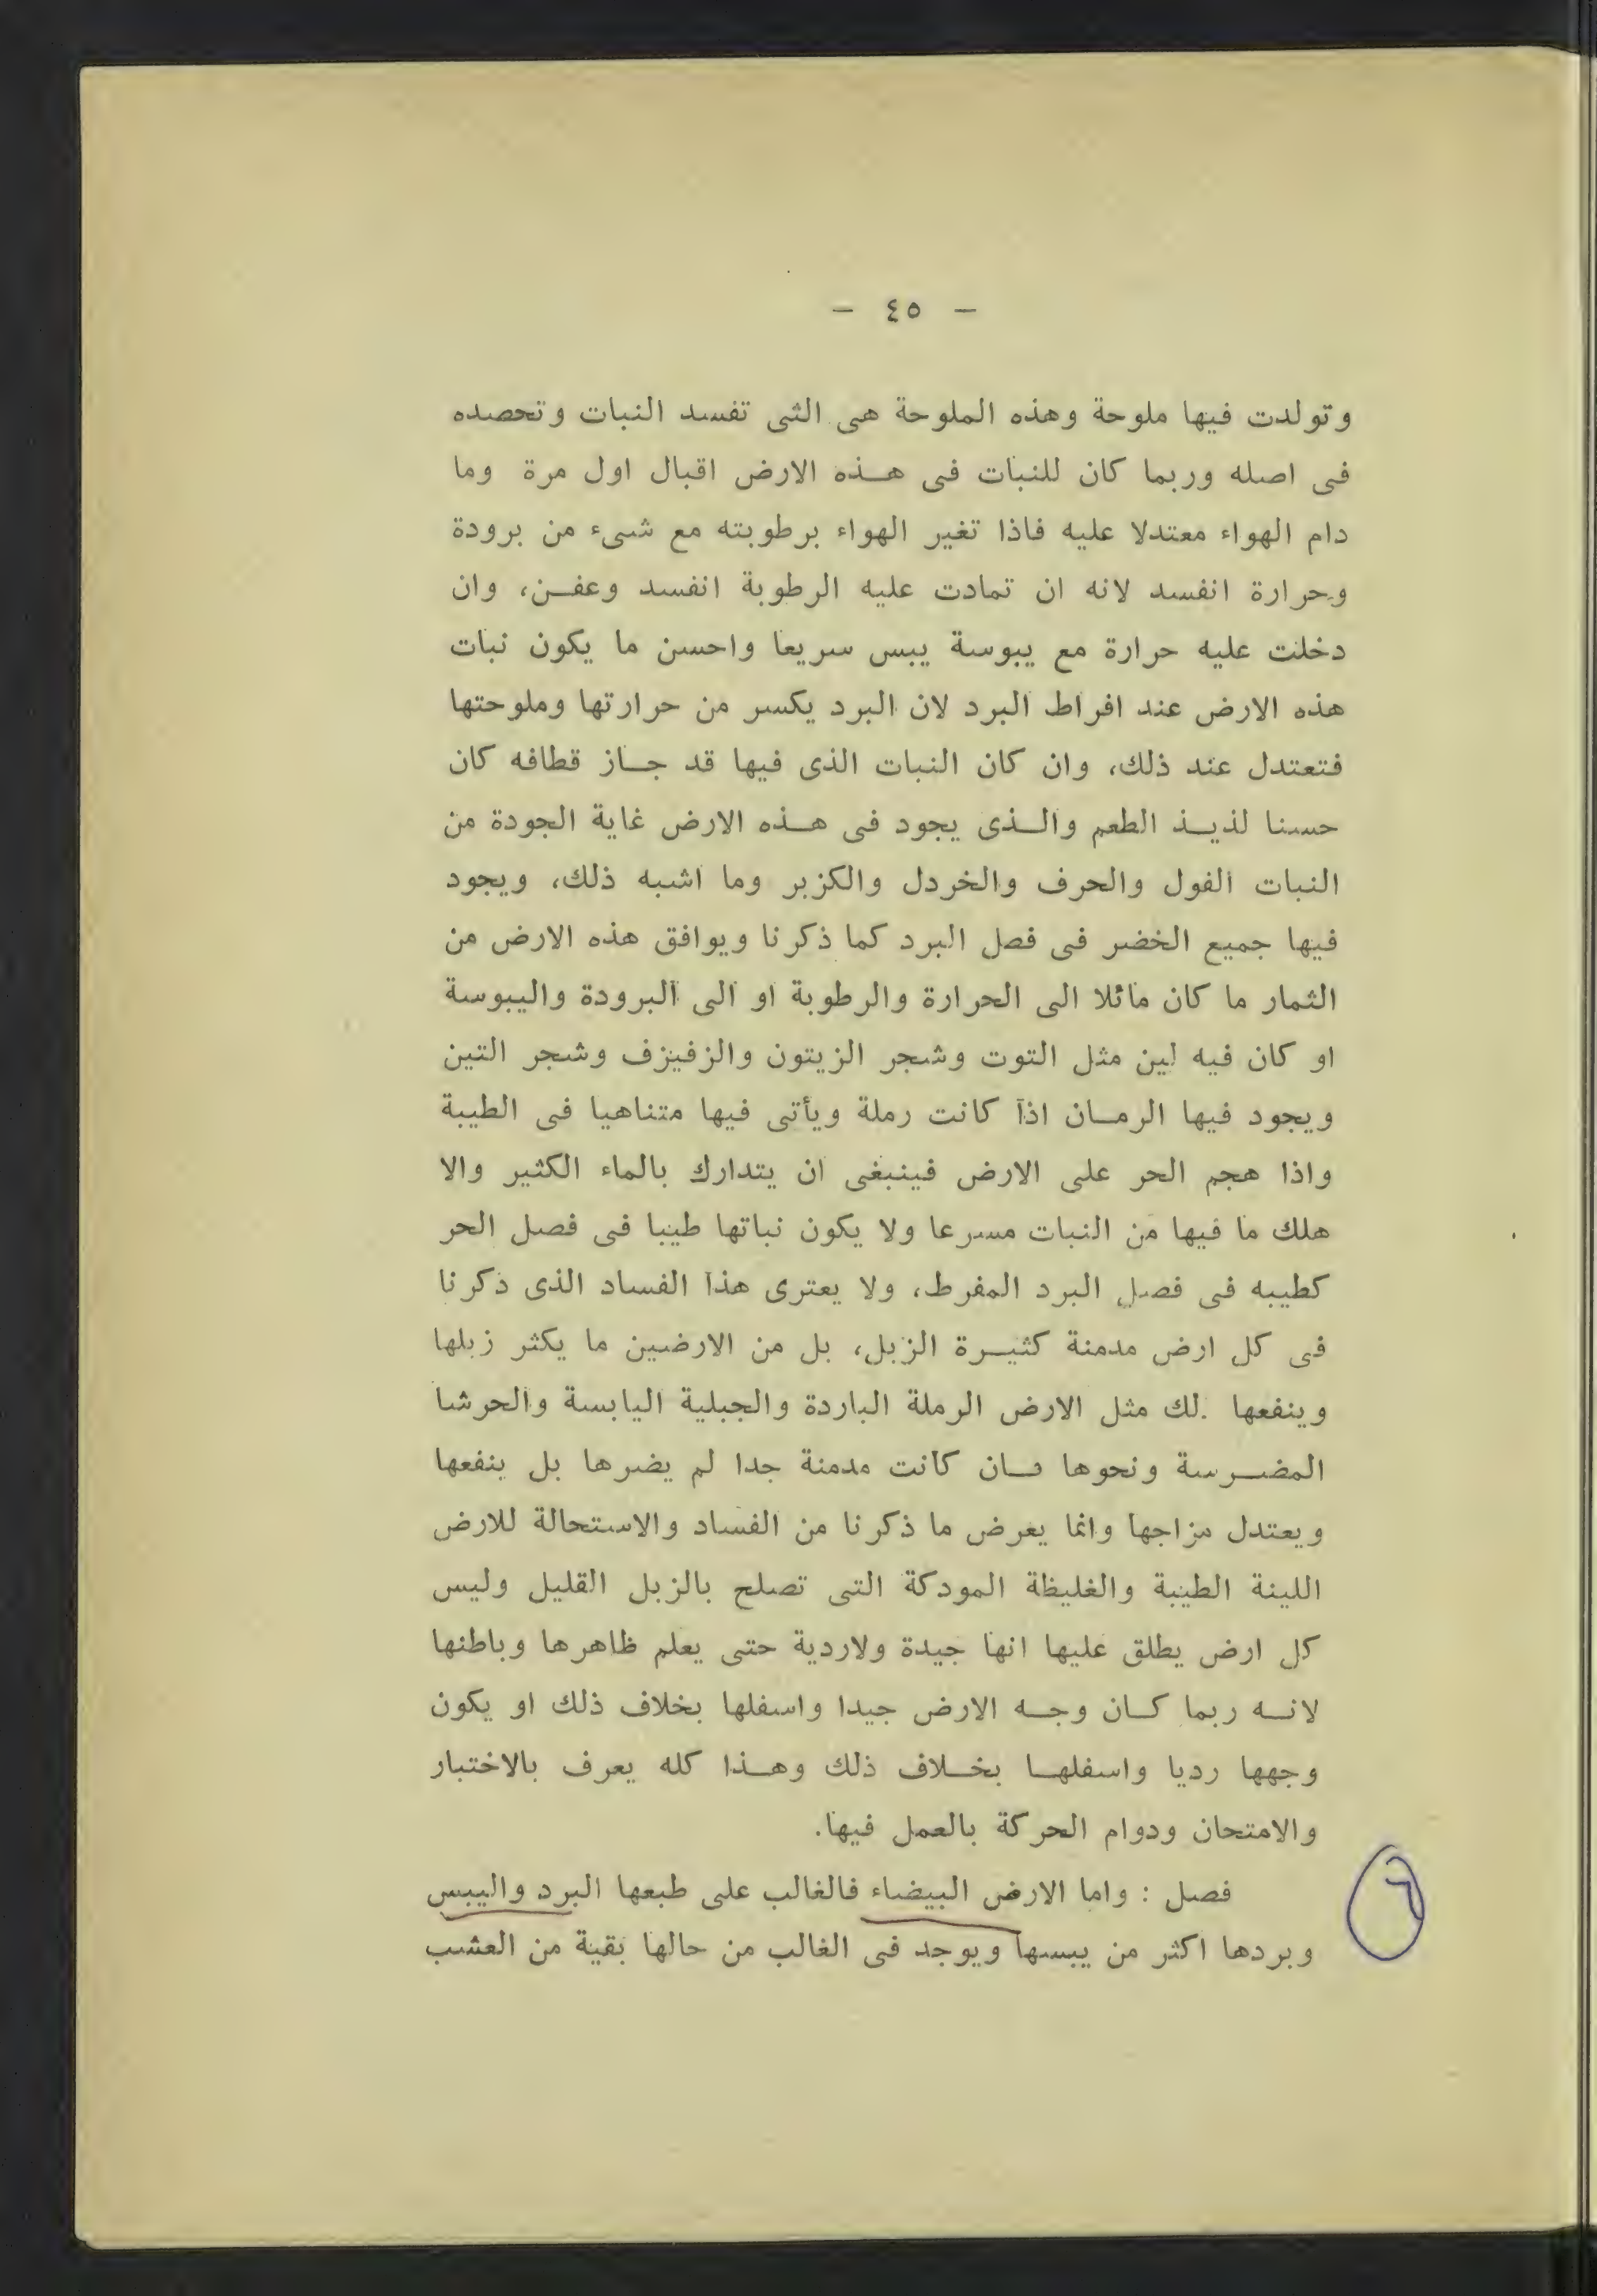 — ٤٥ —
وتولدت فيها ملوحة وهذه الملوحة هى التى تفسد النبات وتحصده
فى اصله وربما كان للنبات فى هذه الارض اقبال اول مرة وما
دام الهواء معتدلا عليه فاذا تغير الهواء برطوبته مع شىء من برودة
وحرارة انفسد لانه ان تمادت عليه الرطوبة انفسد وعفن، وان
دخلت عليه حرارة مع يبوسة يبس سريعا واحسن ما يكون نبات
هذه الارض عند افراط البرد لان البرد يكسر من حرارتها وملوحتها
فتعتدل عند ذلك، وان كان النبات الذى فيها قد جاز قطافه كان
حسنا لذيذ الطعم والذى يجود فى هذه الارض غاية الجودة من
النبات الفول والحرف والخردل والكزبر وما اشبه ذلك، ويجود
فيها جميع الخضر فى فصل البرد كما ذكرنا ويوافق هذه الارض من
الثمار ما كان مائلا الى الحرارة والرطوبة او الى البرودة واليبوسة
او كان فيه لين مثل التوت وشجر الزيتون والزفيزف وشجر التين
ويجود فيها الرمان اذا كانت رملة ويأتى فيها متناهيا فى الطيبة
واذا هجم الحر على الارض فينبغى ان يتدارك بالماء الكثير والا
هلك ما فيها من النبات مسرعا ولا يكون نباتها طيبا فى فصل الحر
كطيبه فى فصل البرد المفرط، ولا يعترى هذا الفساد الذى ذكرنا
فى كل ارض مدمنة كثيرة الزبل، بل من الارضين ما يكثر زبلها
وينفعها .لك مثل الارض الرملة الباردة والجبلية اليابسة والحرشا
المضرسة ونحوها فان كانت مدمنة جدا لم يضرها بل ينفعها
ويعتدل مزاجها وانما يعرض ما ذكرنا من الفساد والاستحالة للارض
اللينة الطيبة والغليظة المودكة التى تصلح بالزبل القليل وليس
كل ارض يطلق عليها انها جيدة ولاردية حتى يعلم ظاهرها وباطنها
لانه ربما كان وجه الارض جيدا واسفلها بخلاف ذلك او يكون
وجهها رديا واسفلها بخلاف ذلك وهذا كله يعرف بالاختبار
والامتحان ودوام الحركة بالعمل فيها.
فصل : واما الارض البيضاء فالغالب على طبعها البرد واليبس
وبردها اكثر من يبسها ويوجد فى الغالب من حالها بقية من العشب